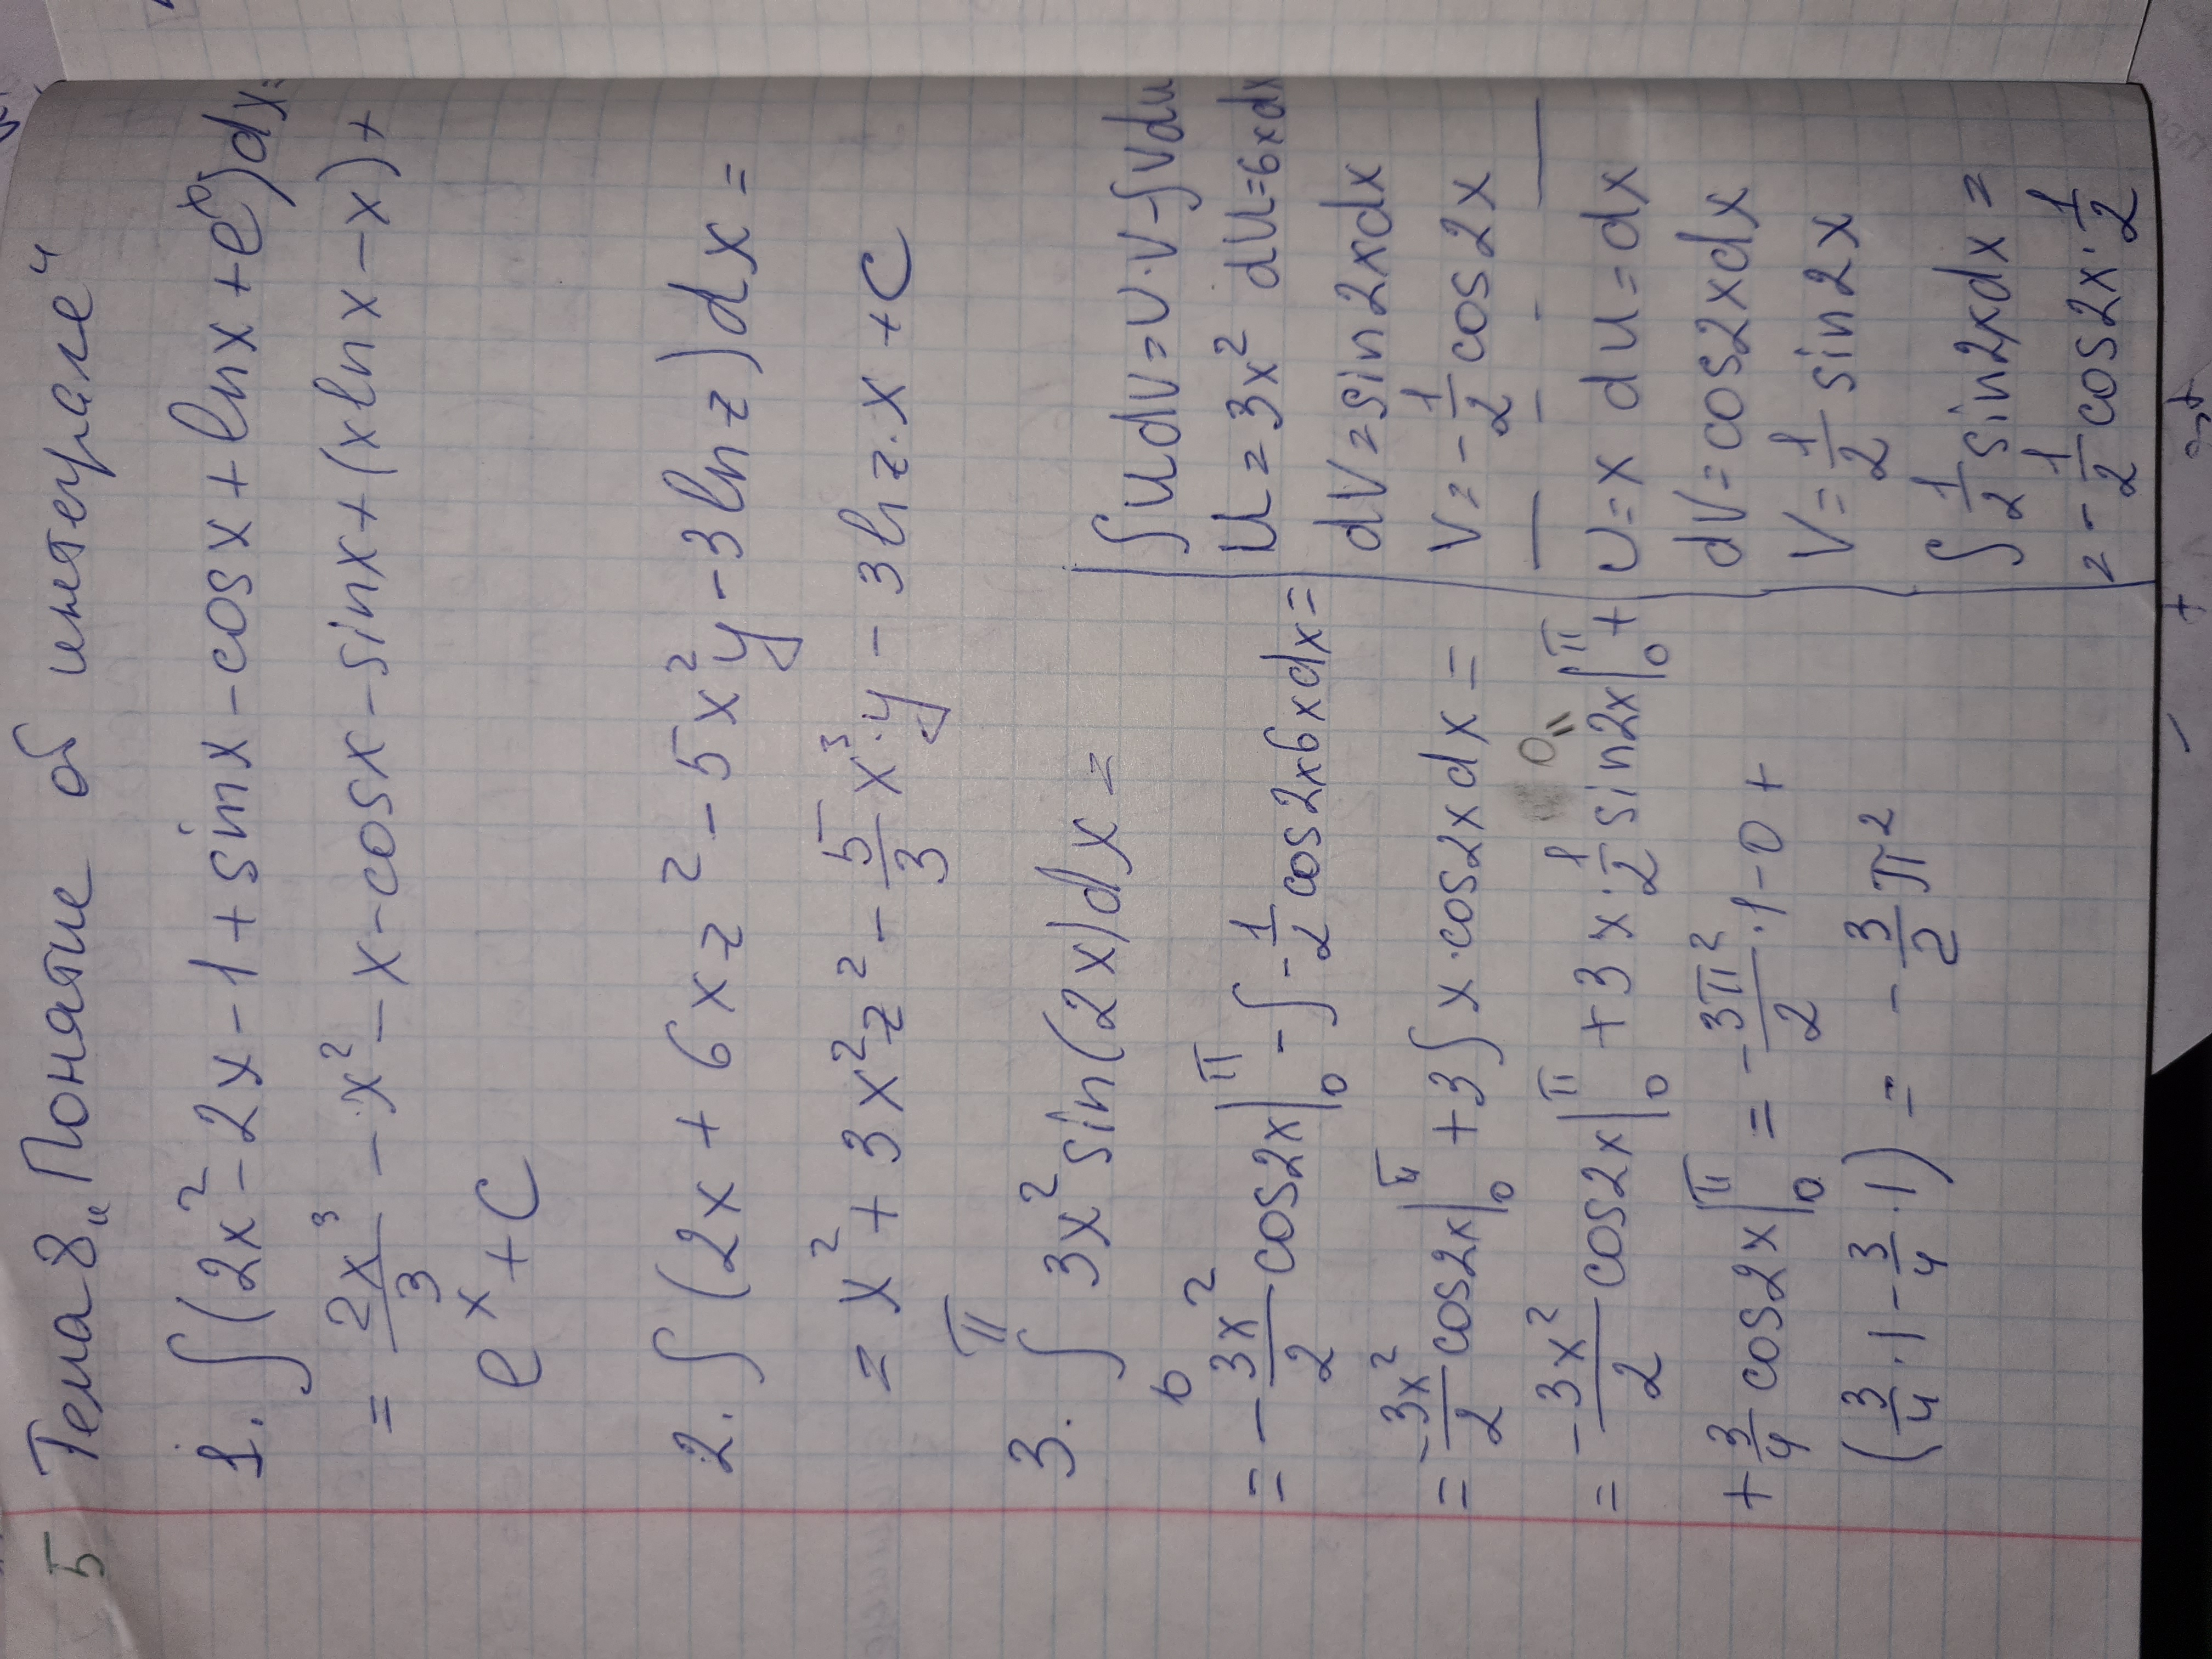 5 Тема 8 „Понятие об интеграле“
1. ∫(2x² - 2x - 1 + sinx - cosx + lnx + eˣ)dx =
= 2x³/3 - x² - x - cosx - sinx + (xlnx - x) +
eˣ + C
2. ∫(2x + 6xz² - 5x²y - 3lnz)dx =
= x² + 3x²z² - 5/3 x³·y - 3lnz·x + C
3. ∫₀^π 3x² sin(2x)dx =
= -3x²/2 cos2x|₀^π - ∫ -1/2 cos2x6xdx =
= -3x²/2 cos2x|₀^π + 3∫x·cos2xdx =
= -3x²/2 cos2x|₀^π + 3x·1/2 sin2x|₀^π +
0
"
+ 3/4 cos2x|₀^π = -3π²/2 ·1 - 0 +
(3/4·1 - 3/4·1) = -3/2 π²
∫UdV = U·V - ∫Vdu
U = 3x² dU = 6xdx
dV = sin2xdx
V = -1/2 cos2x
U = x du = dx
dV = cos2xdx
V = 1/2 sin2x
∫1/2 sin2xdx =
= -1/2 cos2x·1/2